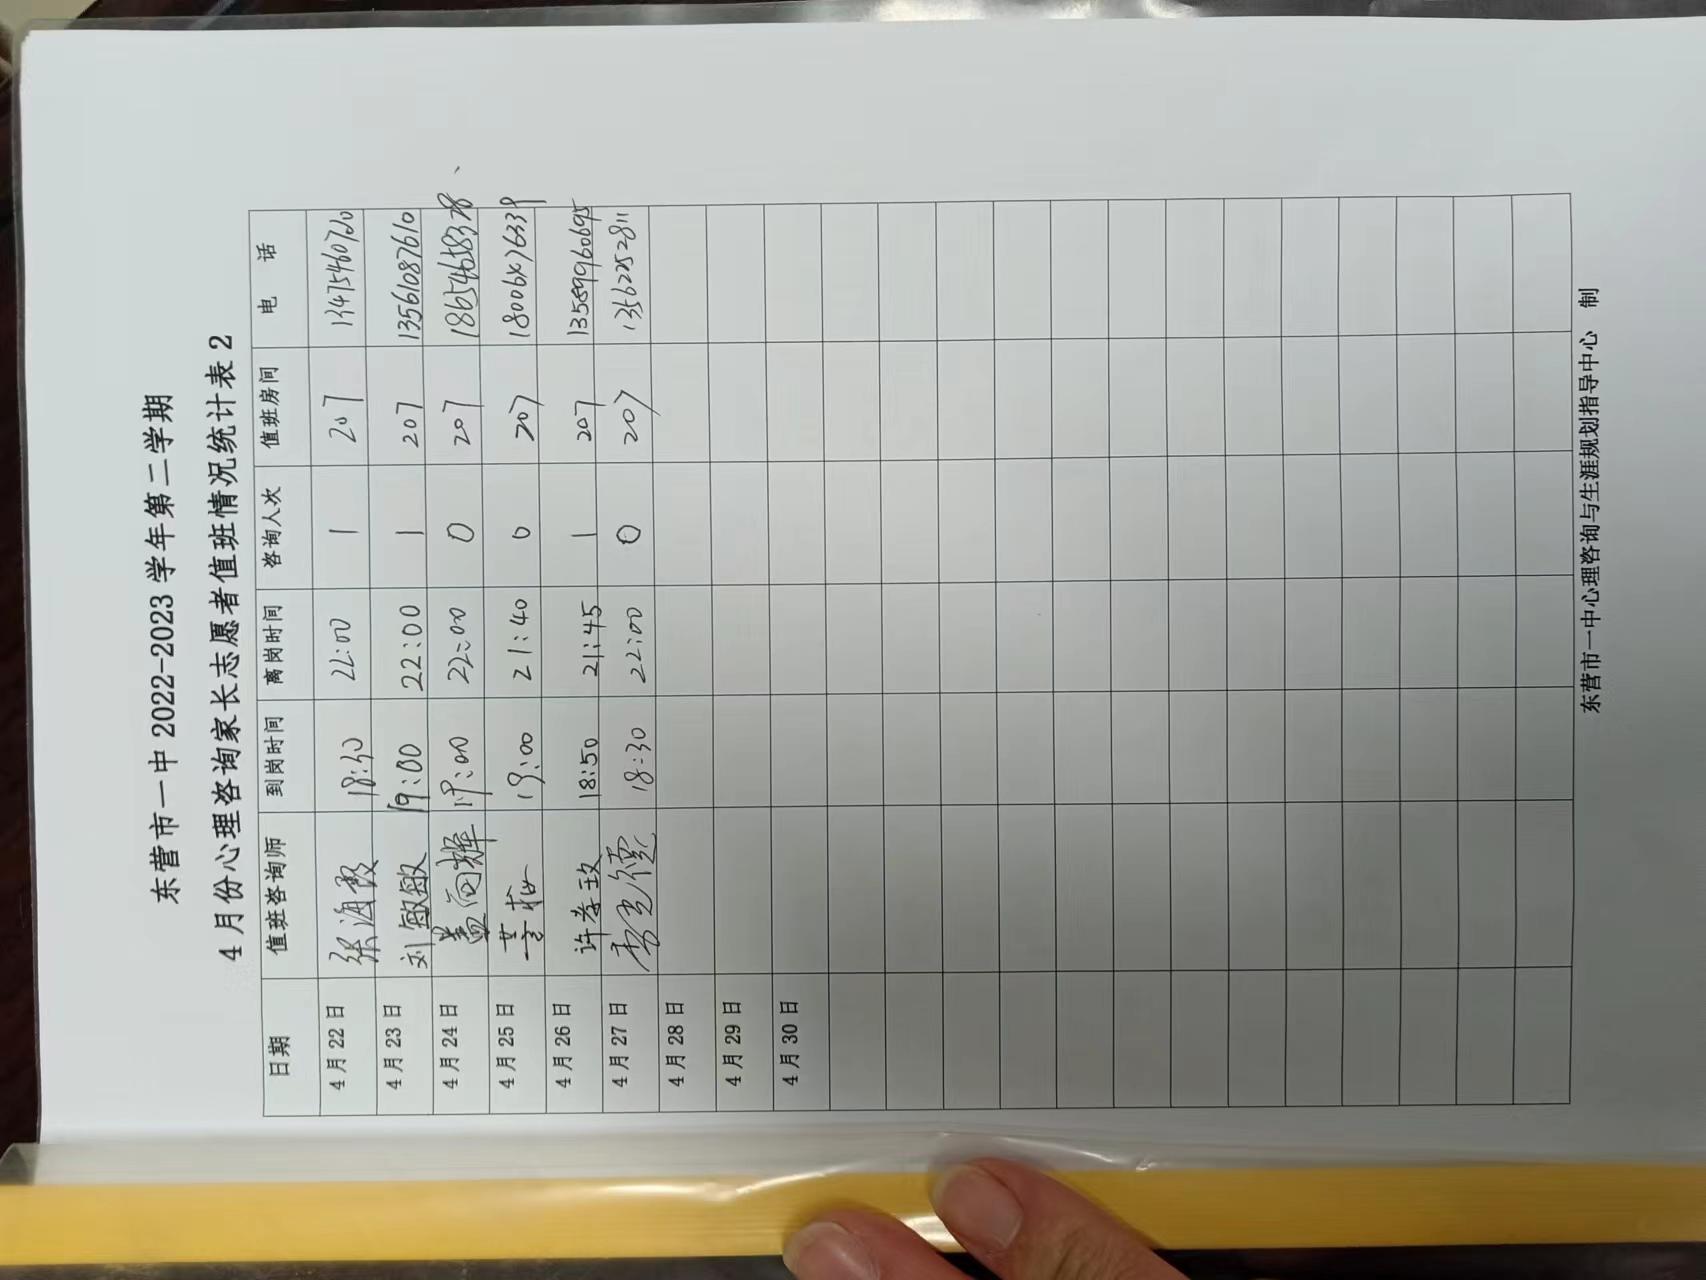 东营市一中 2022-2023 学年第二学期
4月份心理咨询家长志愿者值班情况统计表 2
日期 值班咨询师 到岗时间 离岗时间 咨询人次 值班房间 电 话
4月22日 张海霞 18:30 22:00 1 207 13475460720
4月23日 刘敏敏 19:00 22:00 1 207 13561087610
4月24日 盖向辉 19:00 22:00 0 207 18654658328
4月25日 19:00 21:40 0 207
4月26日 许孝玫 18:50 21:45 1 207 13589960695
4月27日 18:30 22:00 0 207 13562252811
4月28日
4月29日
4月30日
东营市一中心理咨询与生涯规划指导中心 制